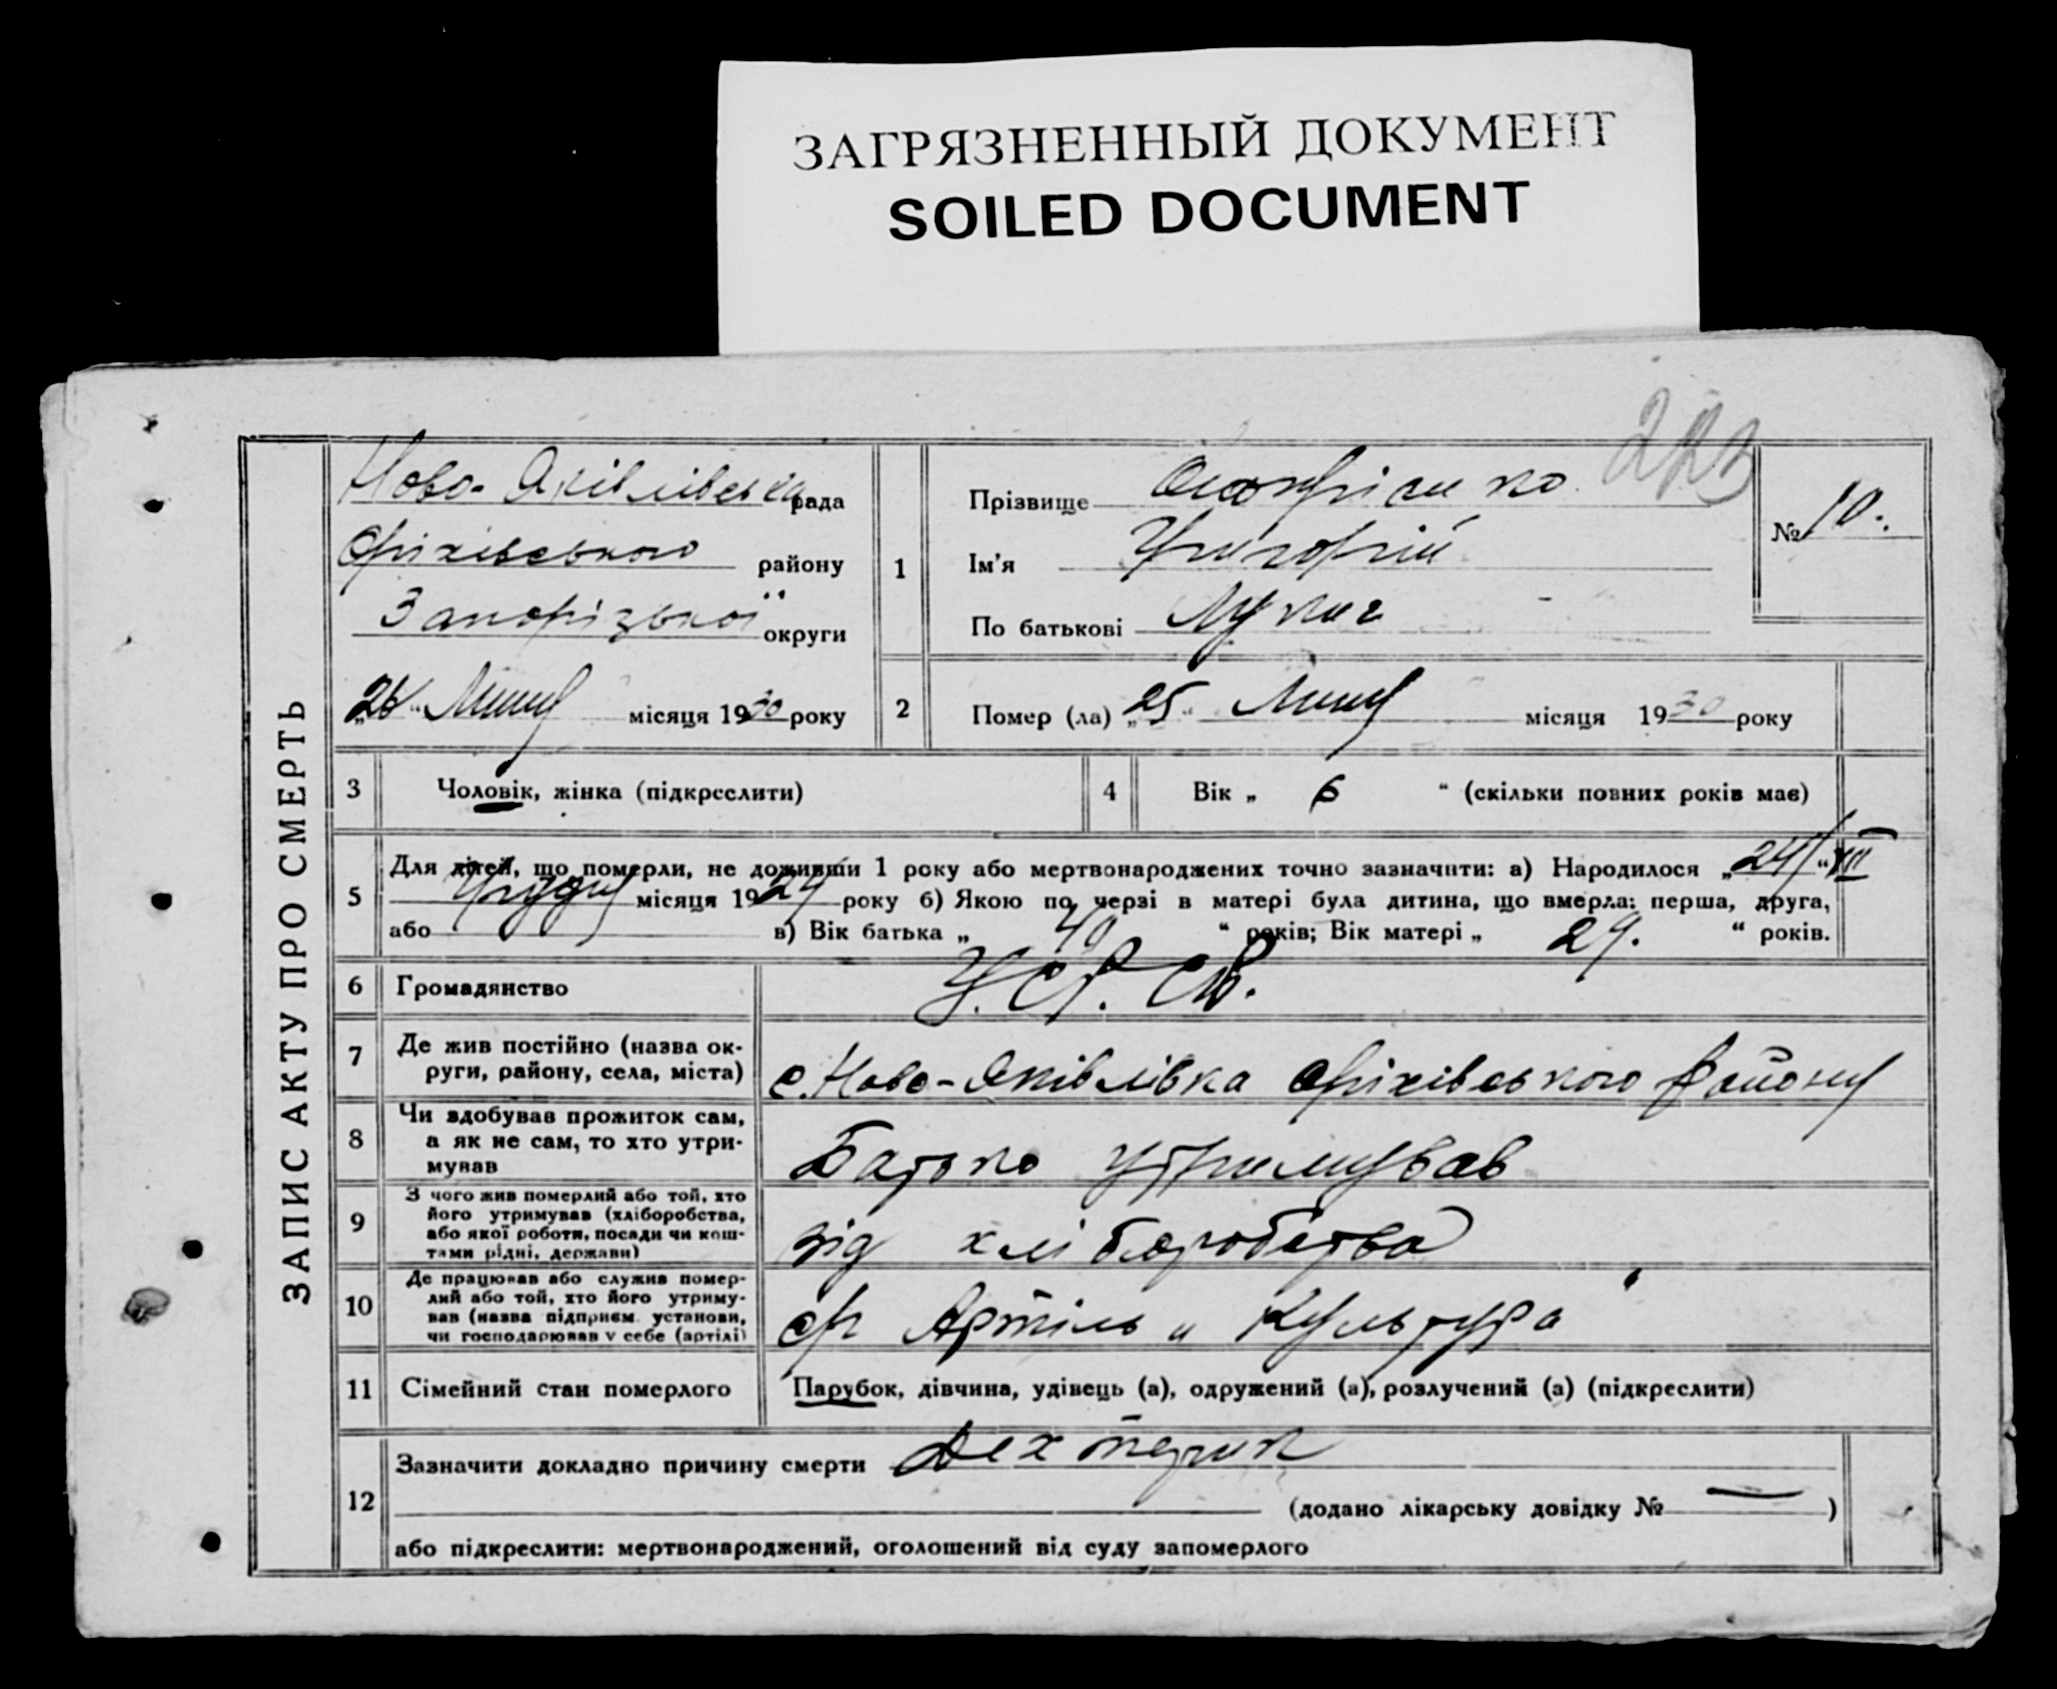 ЗАГРЯЗНЕННЫЙ ДОКУМЕНТ
SOILED DOCUMENT
223
ЗАПИС АКТУ ПРО СМЕРТЬ
Ново-Яківлівська рада
Оріхівського району
Запорізької округи
„26“ Липця місяця 1930 року
1
Прізвище
Ім'я Григорій
По батькові Лукич
№ 10.
2
Помер (ла) „25“ Липця місяця 1930 року
3 Чоловік, жінка (підкреслити)
4 Вік „ 6 “ (скільки повних років має)
5
Для дітей, що померли, не доживши 1 року або мертвонароджених точно зазначити: а) Народилося „24“ XII
Грудня місяця 1924 року б) Якою по черзі в матері була дитина, що вмерла: перша, друга,
або в) Вік батька „ 40 “ років; Вік матері „ 29. “ років.
6 Громадянство
7 Де жив постійно (назва ок-
руги, району, села, міста)
с. Ново-Яківлівка Оріхівського району
8 Чи здобував прожиток сам,
а як не сам, то хто утри-
мував
Батько утримував
9 З чого жив померлий або той, хто
його утримував (хліборобства,
або якої роботи, посади чи кош-
тами рідні, держави)
від хліборобства
10 Де працював або служив помер-
лий або той, хто його утриму-
вав (назва підприєм. установи,
чи господарював у себе (артілі)
Артіль „Культура“
11 Сімейний стан померлого
Парубок, дівчина, удівець (а), одружений (а), розлучений (а) (підкреслити)
12
Зазначити докладно причину смерти Дехтерик
(додано лікарську довідку № — )
або підкреслити: мертвонароджений, оголошений від суду запомерлого